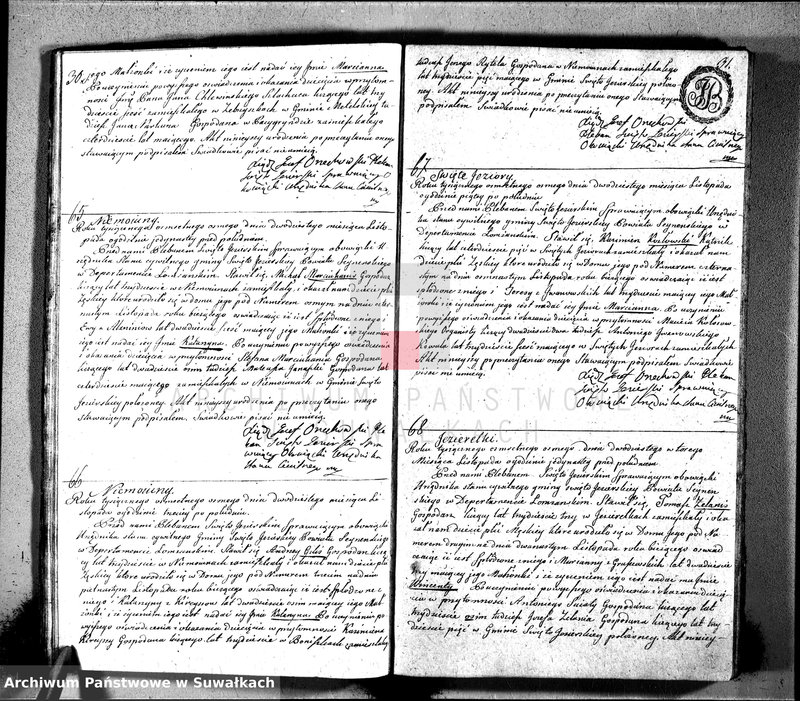 30.
jego Małżonki i że życzeniem jego jest nadać jej Jmie Marcianna
Po uczynieniu powyższego oświadczenia i okazania dziecięcia w przytom
ności
dzieści sześć zamieszkałego w w Gminie
tudzież Gospodarza w zamieszkałego
czterdzieści lat mającego. Akt niniejszy urodzenia po przeczytaniu onego
stawającym podpisałem Świadkowie pisać nie umieją.
Xiądz Josef Onechowski Pleban
Święto Jezierski sprawujący
obowiązki Urzędnika Stanu Cywilnego
65
Niemoiuny.
Roku tysiącznego osmsetnego osmego dnia dwudziestego miesiąca Listo
pada o godzinie jedynastej przed południem
Przed nami Plebanem Święto Jezierskim Sprawującym obowiązki U
rzędnika Stanu cywilnego gminy Święto Jezierskiej Powiatu Seynenskiego
w Departamencie Łomżanskim. Stawił się Michał Marciukanis Gospodarz
liczący lat trzydzieście w Niemoiunach zamieszkały i okazał nam dziecię płci
Żęńskiej które urodziło się w domu jego pod Numerem osmym na dniu
Listopada roku bieżącego oświadczając iż jest spłodzone z niego i
Ewy z lat dwadzieście sześć mającej jego Małżonki i że życzeniem
jego jest nadać jej Jmie Katarzyna. Po uczynieniu powyższego oświadczenia
i okazania dziecięcia w przytomności Stefana Marciukania Gospodarza
liczącego lat dwadzieście osm tudzież Gospodarza lat
czterdzieście mającego zamieszkałych w Niemoiunach w Gminie Święto
Jezierskiej położoney. Akt niniejszy urodzenia po przeczytaniu onego
stawającym podpisałem. Świadkowie pisać nie umieją
Xiądz Josef Onechowski Ple
ban Święto Jezierski Spra
wujący Obowiązki Urzędnika
Stanu Cywilnego
66
Niemoiuny.
Roku tysiącznego osmsetnego osmego dnia dwudziestego miesiąca Li
stopada o godzinie trzeciej po południu
Przed nami Plebanem Święto Jezierskim Sprawującym obowiązki
Urzędnika Stanu cywilnego Gminy Święto Jezierskiej Powiatu Seynenskiego
w Departamencie Łomżanskim. Stawił się Andrzey Giłis Gospodarz liczą
cy lat trzydzieście w Niemoiunach zamieszkały i okazał nam dziecię płci
Żęńskiej które urodziło się w Domu jego pod Numerem trzecim na dniu
piętnastym Listopada roku bieżącego oświadczając iż jest spłodzone z
niego i Katarzyny z lat dwadzieście osm mającej jego Mał
żonki i że życzeniem jego jest nadać jej Jmie Katarzyna. Po uczynieniu po
wyższego oświadczenia i okazania dziecięcia w przytomności Kazimierza
Gospodarza liczącego lat trzydzieście w zamieszkałego
61.
tudzież Jerzego Gospodarza w Niemoiunach zamieszkałego
lat trzydzieście pięć mającego w Gminie Święto Jezierskiej położo
ney. Akt niniejszy urodzenia po przeczytaniu onego Stawającym
podpisałem Świadkowie pisać nie umieją
Xiądz Josef Onechowski
Pleban Święto Jezierski Sprawujący
Obowiązki Urzędnika Stanu Cywilnego
67
Święte Jeziory.
Roku tysiącznego osmsetnego osmego dnia dwudziestego miesiąca Listopada
o godzinie piątej po południu
Przed nami Plebanem Święto Jezierskim Sprawującym obowiązki Urzędni
ka Stanu cywilnego gminy Święto Jezierskiej Powiatu Seynenskiego w
Departamencie Łomżanskim. Stawił się Kazimierz Kozłowski
liczący lat czterdzieście pięć w Świętych Jeziorach zamieszkały i okazał nam
dziecię płci Żęńskiej które urodziło się w Domu jego pod Numerem czterna
stym na dniu osmnastym Listopada roku bieżącego oświadczając iż jest
spłodzone z niego i Teresy z Iwanowskich lat trzydzieście mającej jego Mał
żonki i że życzeniem jego jest nadać jej Jmie Marcianna. Po uczynieniu
powyższego oświadczenia i okazania dziecięcia w przytomności Macieia
Organisty liczącego dwadzieście dwa tudzież Antoniego Iwanowskiego
lat trzydzieście sześć mającego w Świętych Jeziorach zamieszkałych
Akt niniejszy po przeczytaniu onego Stawającym podpisałem Świadkowie
pisać nie umieją.
Xiądz Josef Onechowski Pleban
Święto Jezierski Sprawujący
Obowiązki Urzędnika Stanu Cywilnego
68
Jezierelki.
Roku tysiącznego osmsetnego osmego dnia dwudziestego wtorego
Miesiąca Listopada o godzinie jedynastej przed południem
Przed nami Plebanem Święto Jezierskim Sprawującym obowiązki
Urzędnika Stanu cywilnego gminy Święto Jezierskiej Powiatu Seynen
skiego w Departamencie Łomżanskim. Stawił się Tomasz Zelanis
Gospodarz liczący lat trzydzieście trzy w Jezierelkach zamieszkały i oka
zał nam dziecię płci Męskiej które urodziło się w Domu Jego pod Nu
merem drugim na dniu dwunastym Listopada roku bieżącego oświad
czając iż jest spłodzone z niego i Marianny z Grajewskich lat dwadzieście
trzy mającej jego Małżonki i że życzeniem jego jest nadać mu Jmie
Wincenty. Po uczynieniu powyższego oświadczenia i okazania dziecię
cia w przytomności Antoniego Gospodarza liczącego lat
trzydzieście osm tudzież Jozefa Zelania Gospodarza liczącego lat trzy
dzieście pięć w Gminie Święto Jezierskiej położoney. Akt niniej
ARCHIWUM PAŃSTWOWE
W SUWAŁKACH
Archiwum Państwowe w Suwałkach